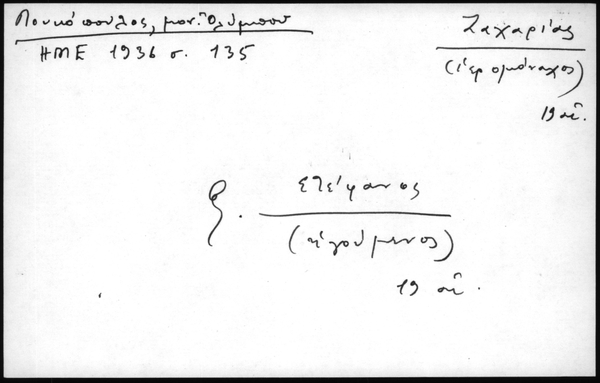 Λουκόπουλος, μον. Ολύμπου
ΗΜΕ 1936 σ. 135
Ζαχαρίας
(ιερομόναχος)
19 αι.
Στέφανος
(ηγούμενος)
19 αι.